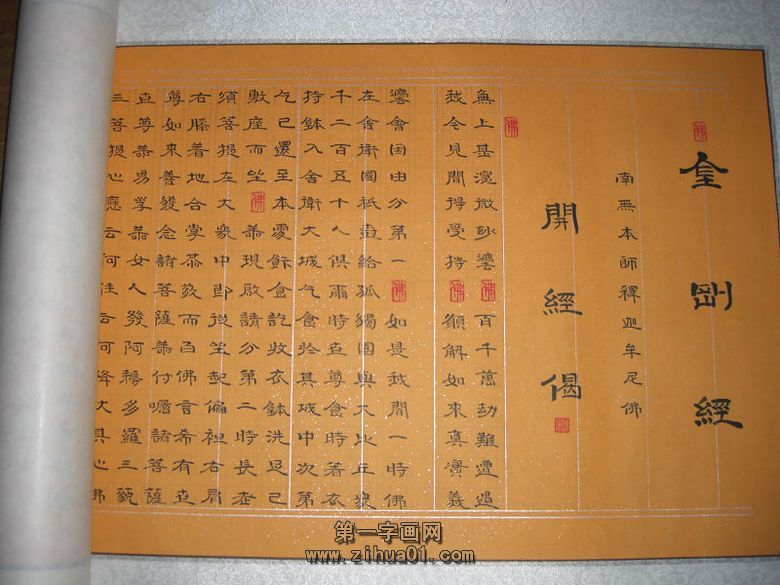 金剛經
南無本師釋迦牟尼佛
開經偈
無上甚深微妙灋佛百千萬劫難遭遇
我今見聞得受持佛願解如來真實義
灋會因由分第一佛如是我聞一時佛
在舍衛國祇給孤獨園與大比丘衆
千二百五十人俱爾時世尊食時著衣
持鉢入舍衛大城乞食於其城中次第
乞已還至本處飯食訖收衣鉢洗足已
敷座而坐佛善現啟請分第二時長老
須菩提在大衆中即從坐起偏袒右肩
右膝着地合掌恭敬而白佛言希有世
尊如來善護念諸菩薩善付囑諸菩薩
世尊善男子善女人發阿耨多羅三藐
三菩提心應云何住云何降伏其心佛
第一字画网
www.zihua01.com